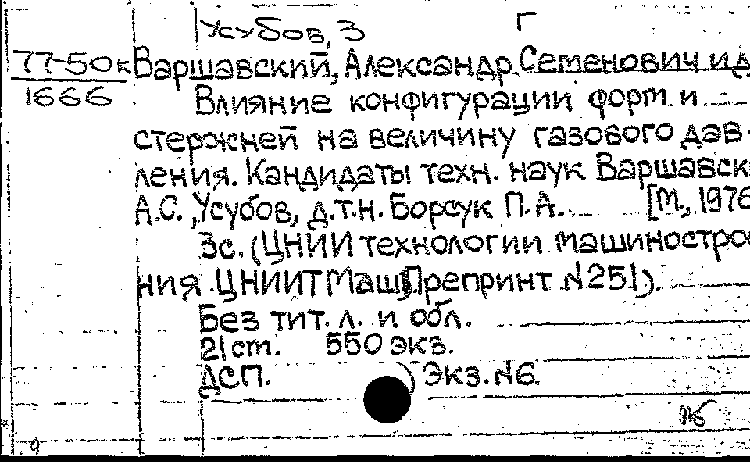 Усубов, З Г
77-50к Варшавский, Александр Семенович и д
1666 Влияние конфигурации форм и
стержней на величину газового дав-
ления. Кандидаты техн. наук Варшавск
А.С., Усубов, д.т.н. Борсук П.А. [М., 1976
3с. (ЦНИИ технологии машинострое
ния. ЦНИИТМаш. Препринт №251).
Без тит. л. и обл.
21 ст. 550 экз.
ДСП. ) Экз. №6.